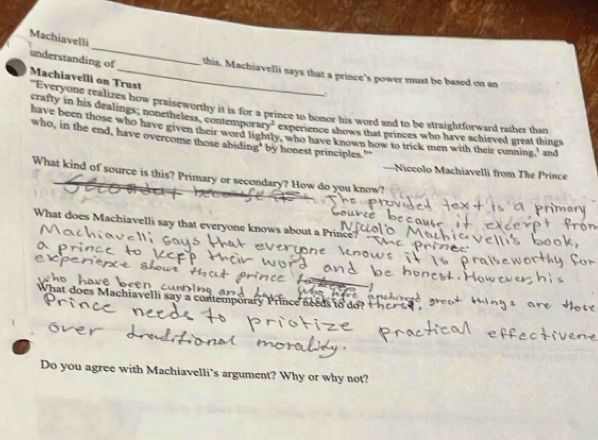 Machiavelli ____________ this. Machiavelli says that a prince's power must be based on an
understanding of ____________.
Machiavelli on Trust
"Everyone realizes how praiseworthy it is for a prince to honor his word and to be straightforward rather than
crafty in his dealings; nonetheless, contemporary² experience shows that princes who have achieved great things
have been those who have given their word lightly, who have known how to trick men with their cunning,³ and
who, in the end, have overcome those abiding⁴ by honest principles."
—Niccolo Machiavelli from The Prince
What kind of source is this? Primary or secondary? How do you know?
Secondary because it
The provided text is a primary
source because it excerpt from
Nicolo Machiavelli's book,
The Prince
What does Machiavelli say that everyone knows about a Prince?
Machiavelli says that everyone knows it is praiseworthy for
a prince to keep their word and be honest. However, his
experience show that prince
who have been cunning and great things are those
What does Machiavelli say a contemporary Prince needs to do?
Prince needs to priotize practical effectivene
over traditional morality.
Do you agree with Machiavelli's argument? Why or why not?